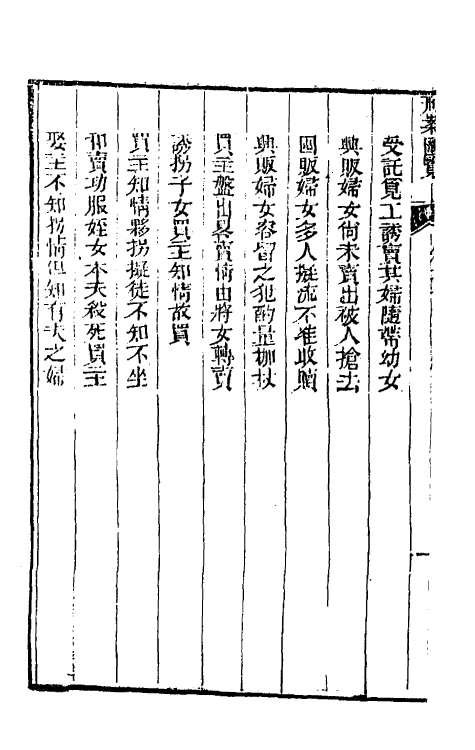 刑案匯覽
受託覓工誘賣其婦隨帶幼女
興販婦女尚未賣出被人搶去
圖販婦女多人擬流不准收贖
興販婦女容留之犯酌量枷杖
買主盤出畧賣情由將女轉賣
誘拐子女買主知情故買
買主知情夥拐擬徒不知不坐
和賣功服姪女本夫殺死買主
娶主不知拐情但知有夫之婦